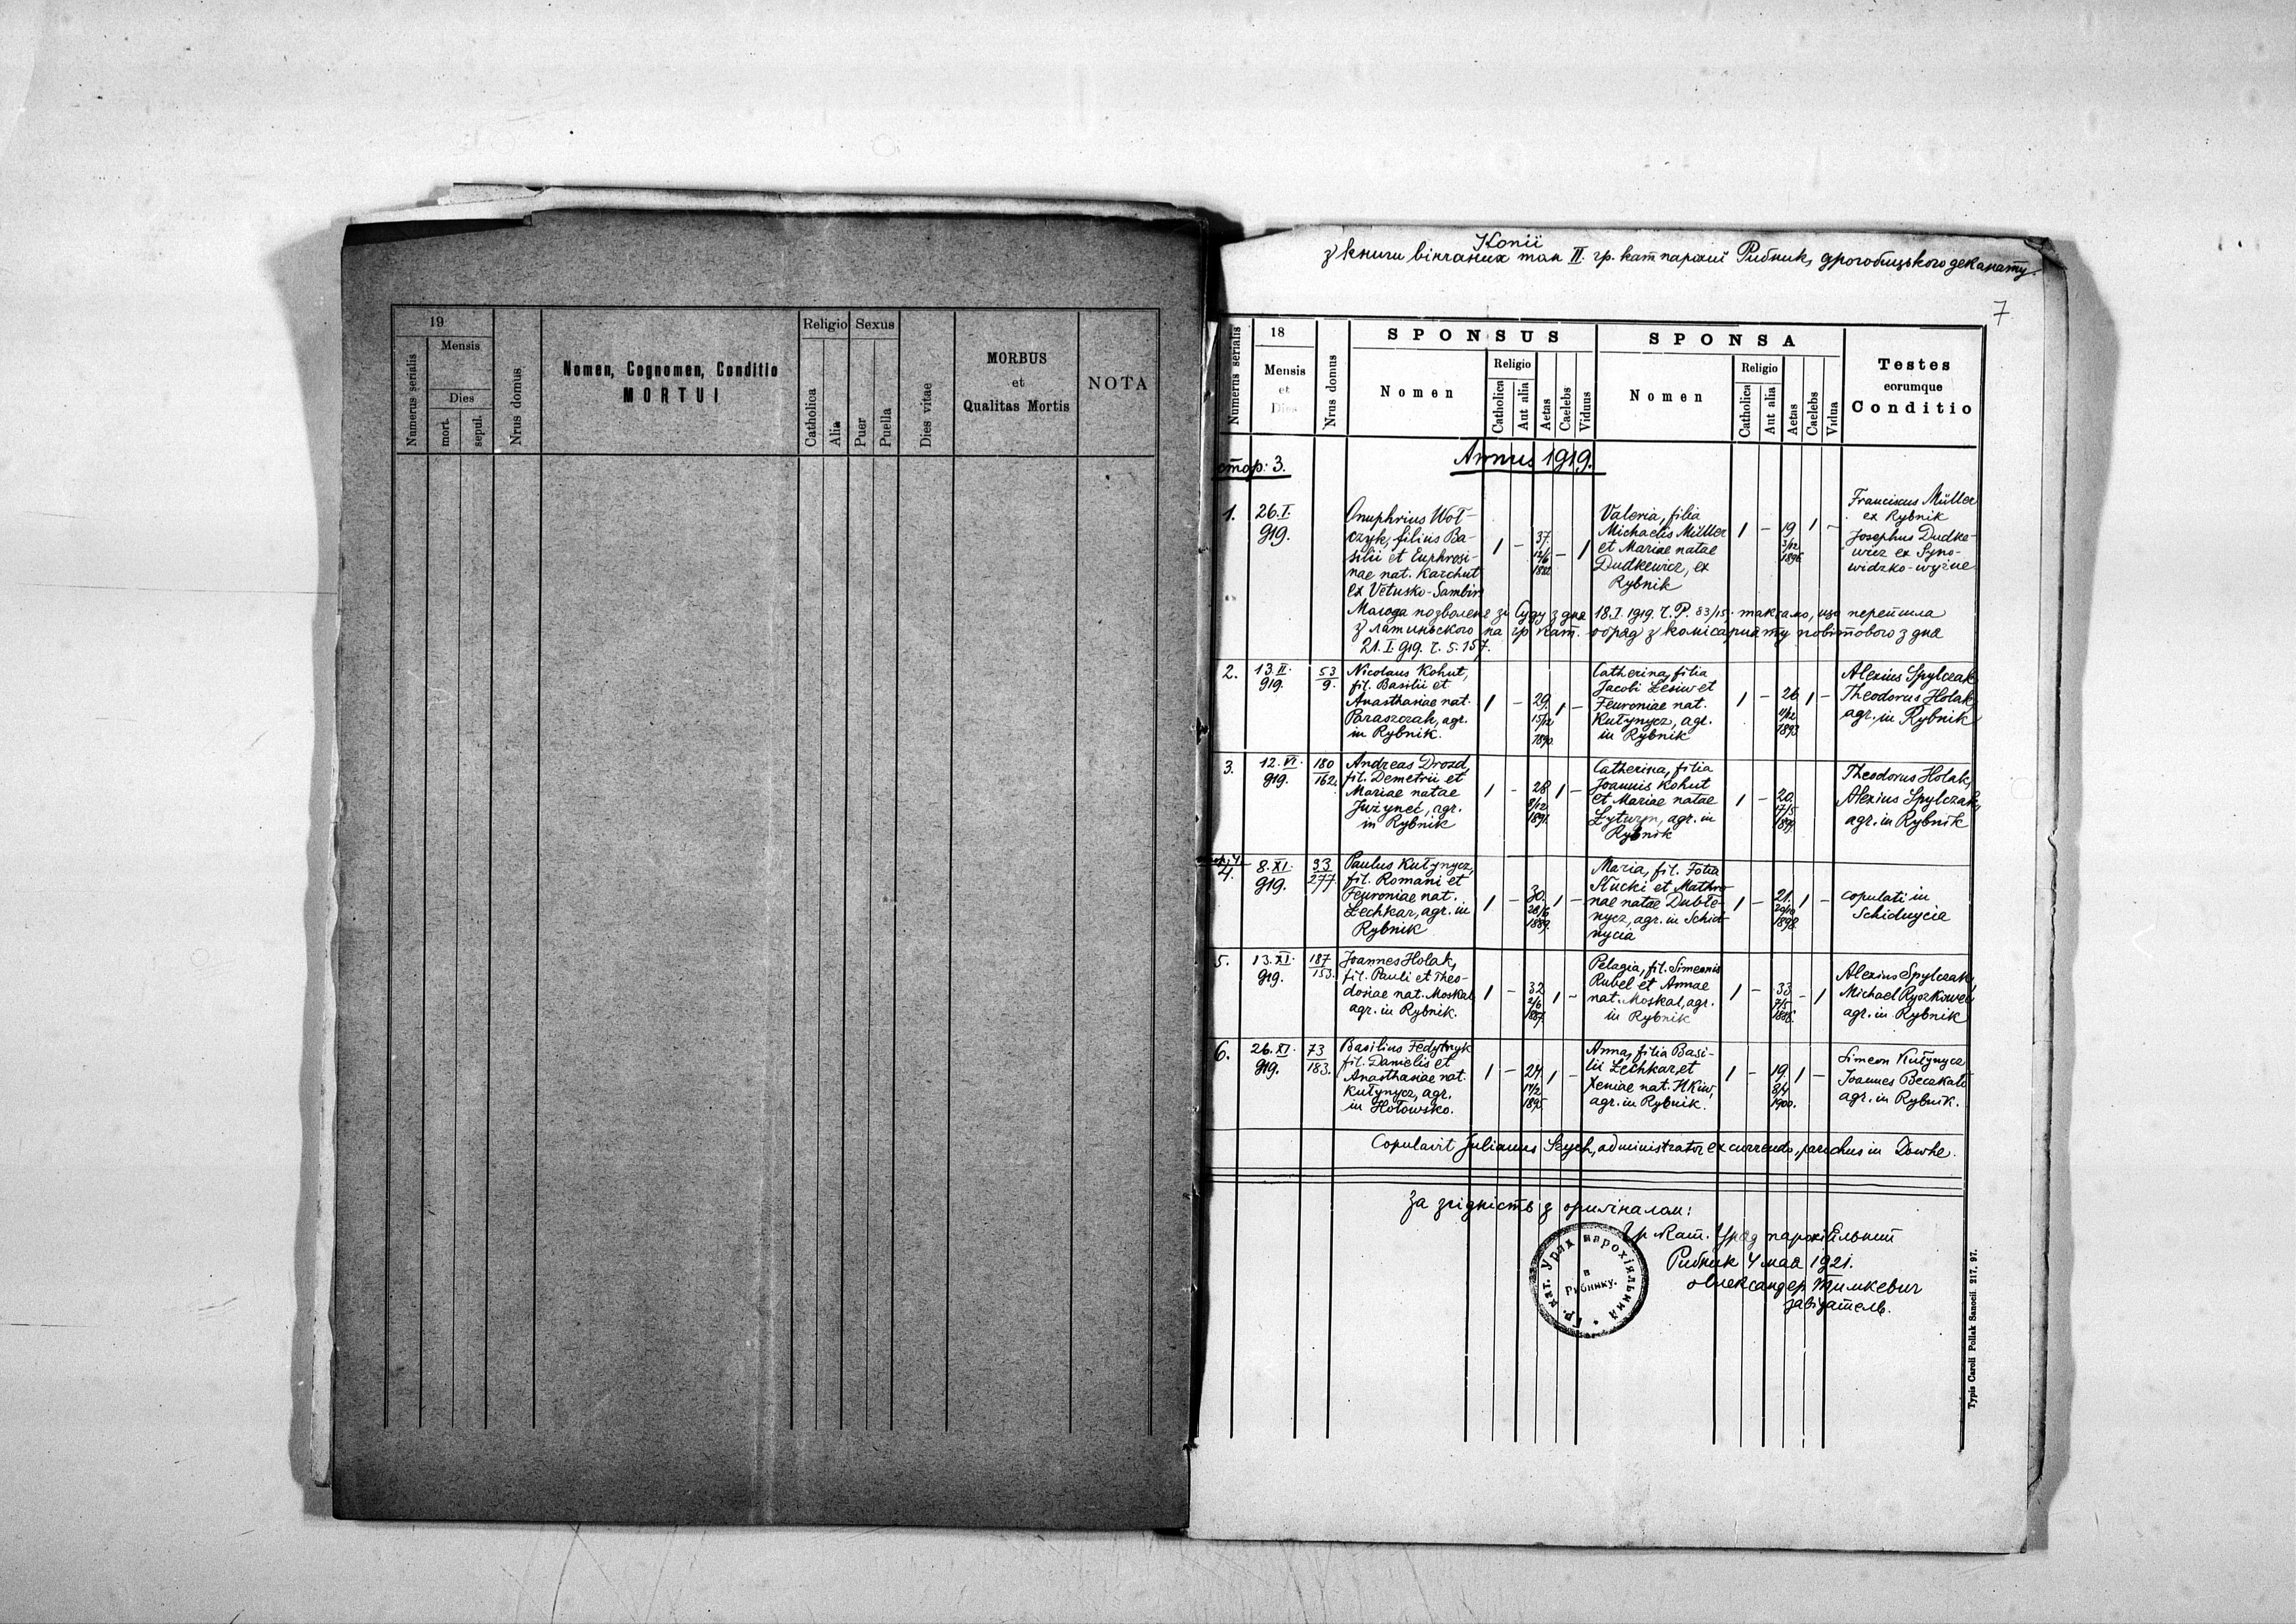 19
Mensis
Dies
Numerus serialis
mort.
sepul.
Nrus domus
Nomen, Cognomen, Conditio
MORTUI
Religio
Sexus
Catholica
Alia
Puer
Puella
Dies vitae
MORBUS
et
Qualitas Mortis
NOTA
Копії
з книги вінчаних том II. гр. кат парохії Рибник, дрогобицького деканату.
7
Numerus serialis
18
Mensis
et
Dies
Nrus domus
SPONSUS
Nomen
Religio
Catholica
Aut alia
Aetas
Caelebs
Viduus
SPONSA
Nomen
Religio
Catholica
Aut alia
Aetas
Caelebs
Vidua
Testes
eorumque
Conditio
стор: 3.
Annus 1919.
1.
26.I.
919.
Onuphrius Woł-
czyk, filius Ba-
silii et Euphrosi-
nae nat. Karchut
ex Vetusko-Sambir
1 - 37. - 1
12/6
1882.
Valeria, filia
Michaelis Müller
et Mariae natae
Dudkewicz, ex
Rybnik
1 - 19 1 -
3/12
1896.
Franciscus Müller
ex Rybnik
Josephus Dudke-
wicz ex Syno-
widzko-wyżne
Молода позволене зі Суду з дня 18.I.919. Ч.P. 83/15; також само, що перейшла
з латинського на гр кат. обряд з комісаріяту повітового з дня
21.I.919. Ч. 5.157.
2.
13.II.
919.
53
9.
Nicolaus Kohut,
fil. Basilii et
Anasthasiae nat.
Paraszczak, agr.
in Rybnik.
1 - 29. 1 -
15/12
1890.
Catherina, filia
Jacobi Lesiw et
Feuroniae nat.
Kutynycz, agr.
in Rybnik
1 - 26. 1 -
11/12
1893.
Alexius Spylczak
Theodorus Holak,
agr. in Rybnik
3.
12.VI.
919.
180
162.
Andreas Drozd,
fil. Demetrii et
Mariae natae
Jużyneć, agr.
in Rybnik
1 - 28 1 -
8/12
1891.
Catherina, filia
Joannis Kohut
et Mariae natae
Łyturyn, agr. in
Rybnik
1 - 20.
17/5
1899.
Theodorus Holak,
Alexius Spylczak,
agr. in Rybnik
стор. 4
4.
8.XI.
919.
33
277
Paulus Kutynycz,
fil. Romani et
Feuroniae nat.
Lechkar, agr. in
Rybnik
1 - 30. 1 -
28/6
1889.
Maria, fil. Fotia
Słucki et Mathro-
nae natae Duble-
nycz, agr. in Schid-
nycia
1 - 21. 1 -
20/10
1898.
copulati in
Schidnycia
5.
13.XI.
919.
187
153.
Joannes Holak,
fil. Pauli et Theo-
dosiae nat. Moskal
agr. in Rybnik.
1 - 32 1 -
2/6
1887.
Pelagia, fil. Simeonis
Rubel et Annae
nat. Moskal, agr.
in Rybnik
1 - 33 - 1
7/5
1886.
Alexius Spylczak,
Michael Ryszkowei
agr. in Rybnik
6.
26.XI.
919.
73
183.
Basilius Fedytnyk
fil. Danielis et
Anasthasiae nat.
Kutynycz, agr.
in Hołowsko.
1 - 24. 1 -
17/2
1895.
Anna, filia Basi-
lii Lechkar, et
Xeniae nat. Ilkiw,
agr. in Rybnik.
1 - 19. 1 -
8/4
1900.
Simeon Kutynycz
Joannes
agr. in Rybnik.
Copulavit Julianus Szych, administrator excurrendo, parochus in Dowhe.
За згідність з оригіналом:
Гр. Кат. Уряд парохіяльний
Рибник 4 мая 1921.
Олександер Тимкевич
завідатель.
Гр. кат. Уряд парохіяльний
в
Рибнику.
Typis Caroli Pollak Sanoeii. 217. 97.